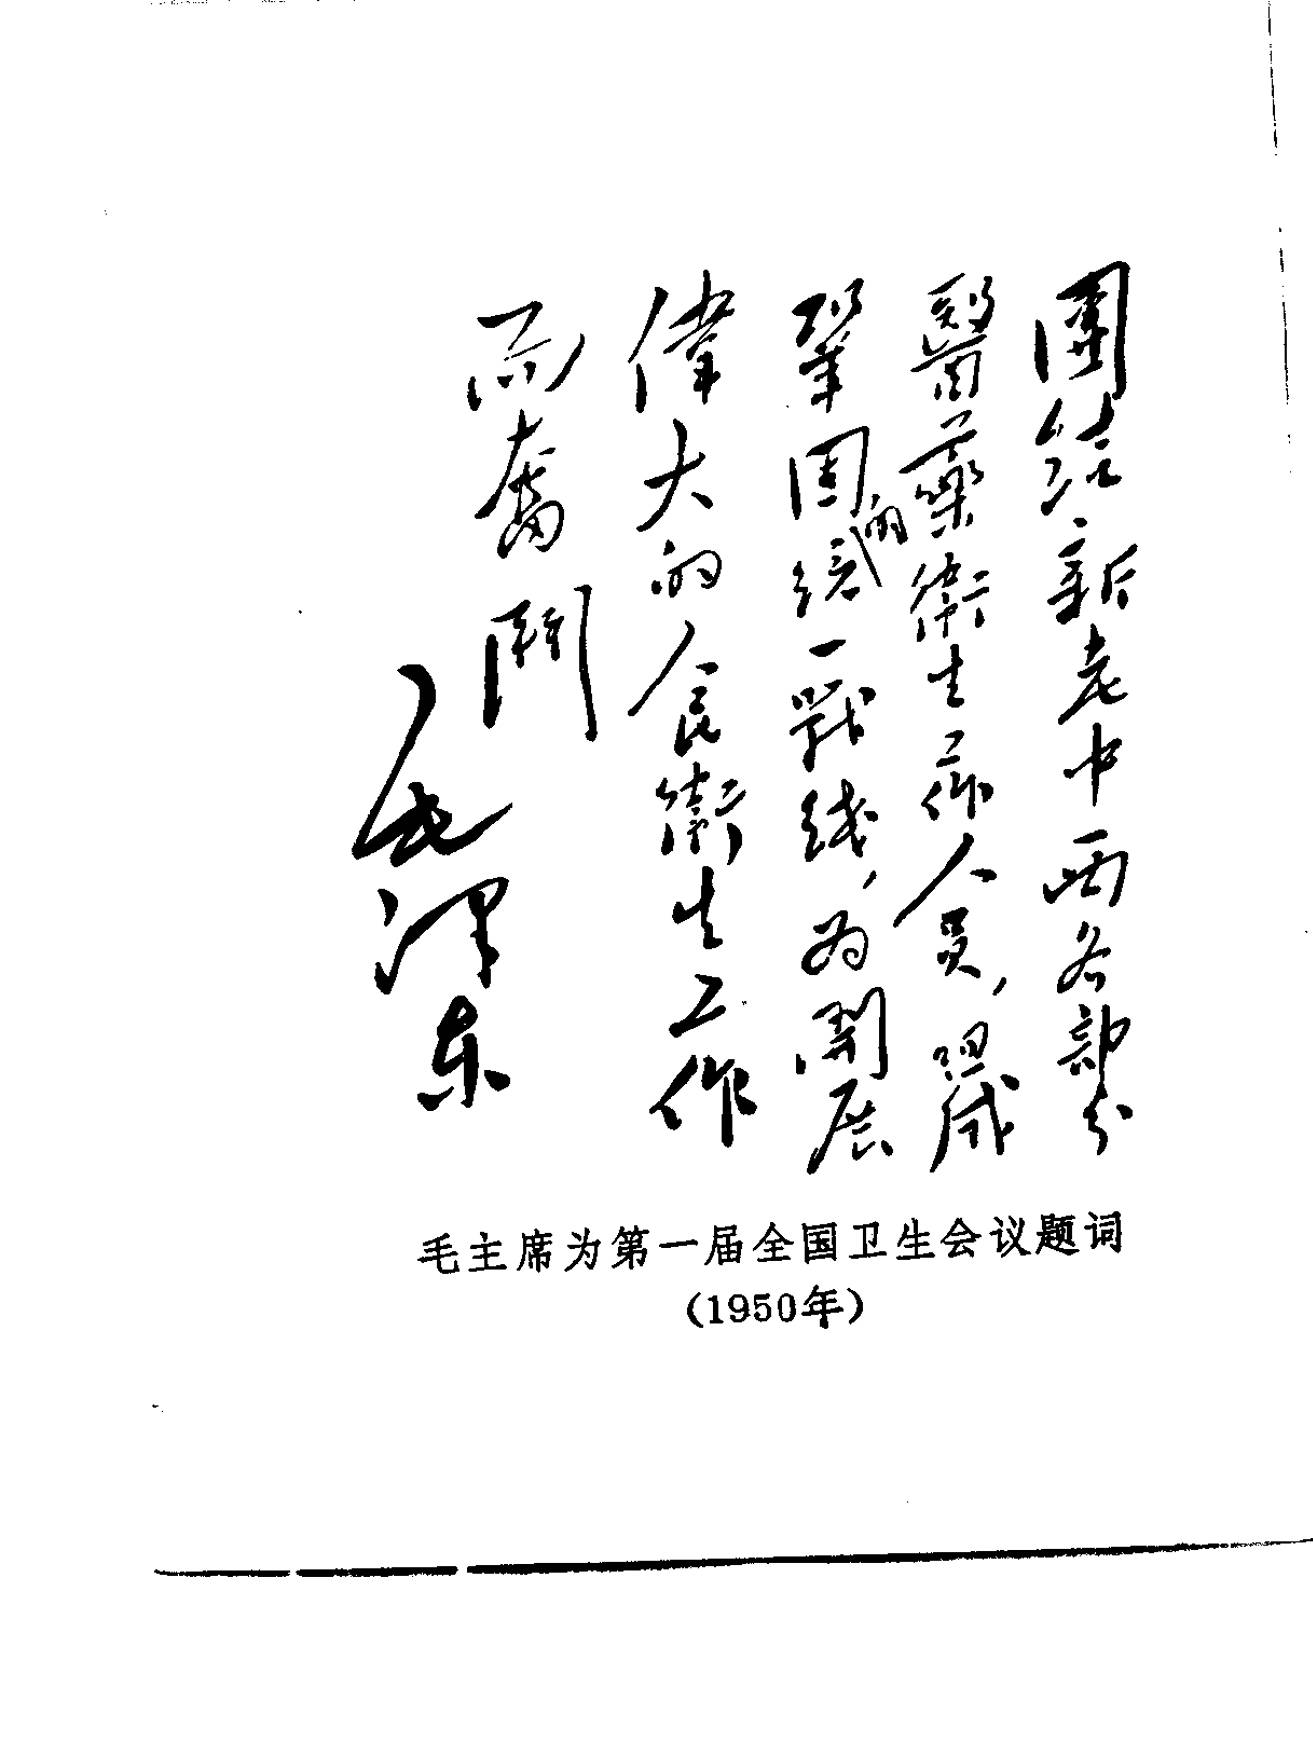 團结新老中西各部分
醫藥衛生工作人員，組成
鞏固的统一戰线，为開展
偉大的人民衛生工作
而奮鬥
毛泽东
毛主席为第一届全国卫生会议题词
(1950年)